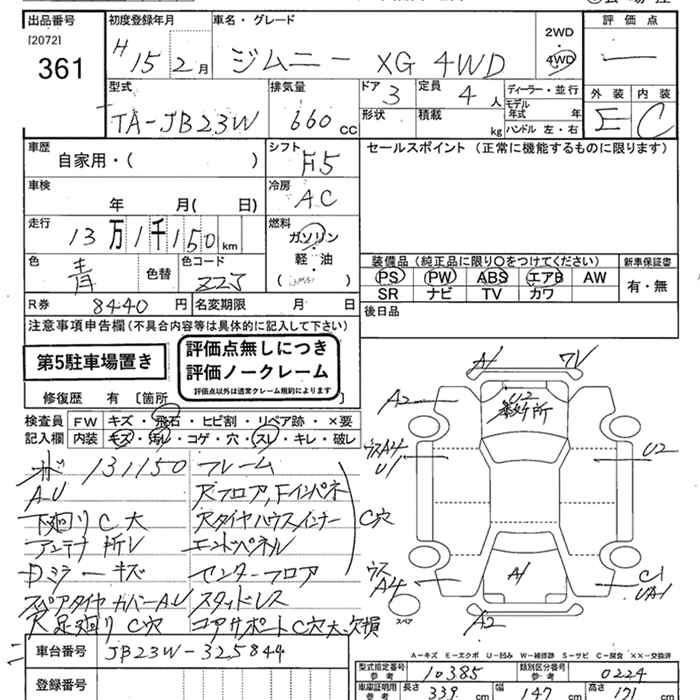 出品番号 初度登録年月 車名・グレード 2WD 評価点
[2072] H 15 2月 ジムニー XG 4WD 4WD ー
361
型式 排気量 ドア 3 定員 4 人 ディーラー・並行 外装 内装
TA-JB23W 660 cc 形状 積載 kg モデル年式 年 E C
ハンドル 左・右
車歴 シフト F5 セールスポイント (正常に機能するものに限ります)
自家用・( )
車検 冷房 AC
年 月( 日)
走行 13万1千150km 燃料
ガソリン
軽・油
( )
色 青 色替 色コード Z2J
装備品(純正品に限り○をつけてください) 新車保証書
PS PW ABS エアB AW 有・無
SR ナビ TV カワ
R券 8440円 名変期限 月 日 後日品
注意事項申告欄(不具合内容等は具体的に記入して下さい)
第5駐車場置き
評価点無しにつき
評価ノークレーム
評価点以外は通常クレーム規約によります
修復歴 有 [箇所 ]
検査員 FW キズ・飛石・ヒビ割・リペア跡・×要
記入欄 内装 キズ・汚レ・コゲ・穴・スレ・キレ・破レ
131150 フレーム
AU Rフロア,Fインパネ
下廻りC大 Rタイヤハウスインナー C穴
アンテナ折レ エンドパネル
Dミラーキズ センターフロア
スペアタイヤカバーAU スタッドレス
R足廻りC穴 コアサポートC穴大、欠損
A1 7V
A2 U2
ウスA4 U1 U2
ウスA4 A1 C1 UA1
スペア A2
A-キズ E-エクボ U-凹み W-補修跡 S-サビ C-腐食 ××-交換済
車台番号 JB23W-325844
登録番号
型式指定番号 参考 10385 類別区分番号 参考 0224
車庫証明用 参考 長さ 339 cm 幅 147 cm 高さ 171 cm